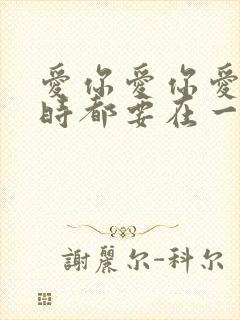 愛你愛你愛
時都要在一
謝麗尔-科尔